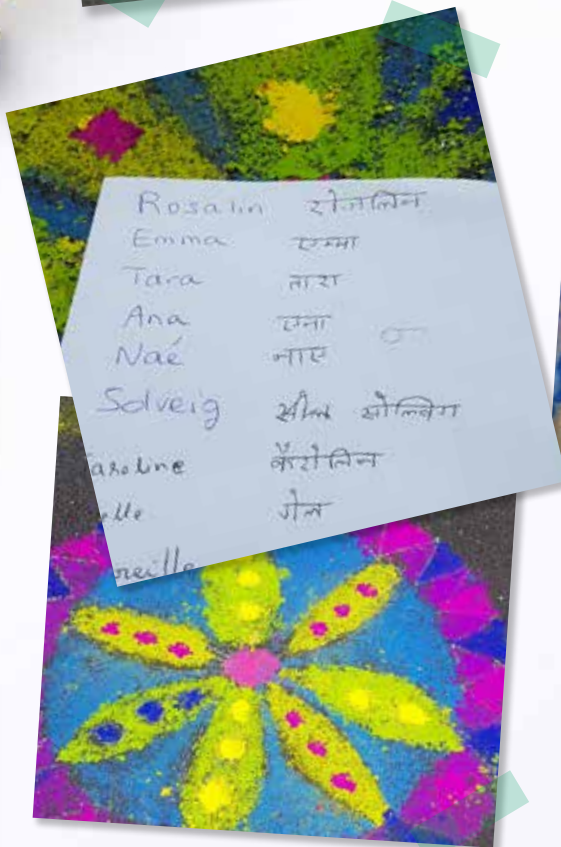 Rosalin रोजलिन
Emma एम्मा
Tara तारा
Ana एना
Naé नाए
Solveig सोल्विग
aroline कैरोलिन
elle गेल
reille